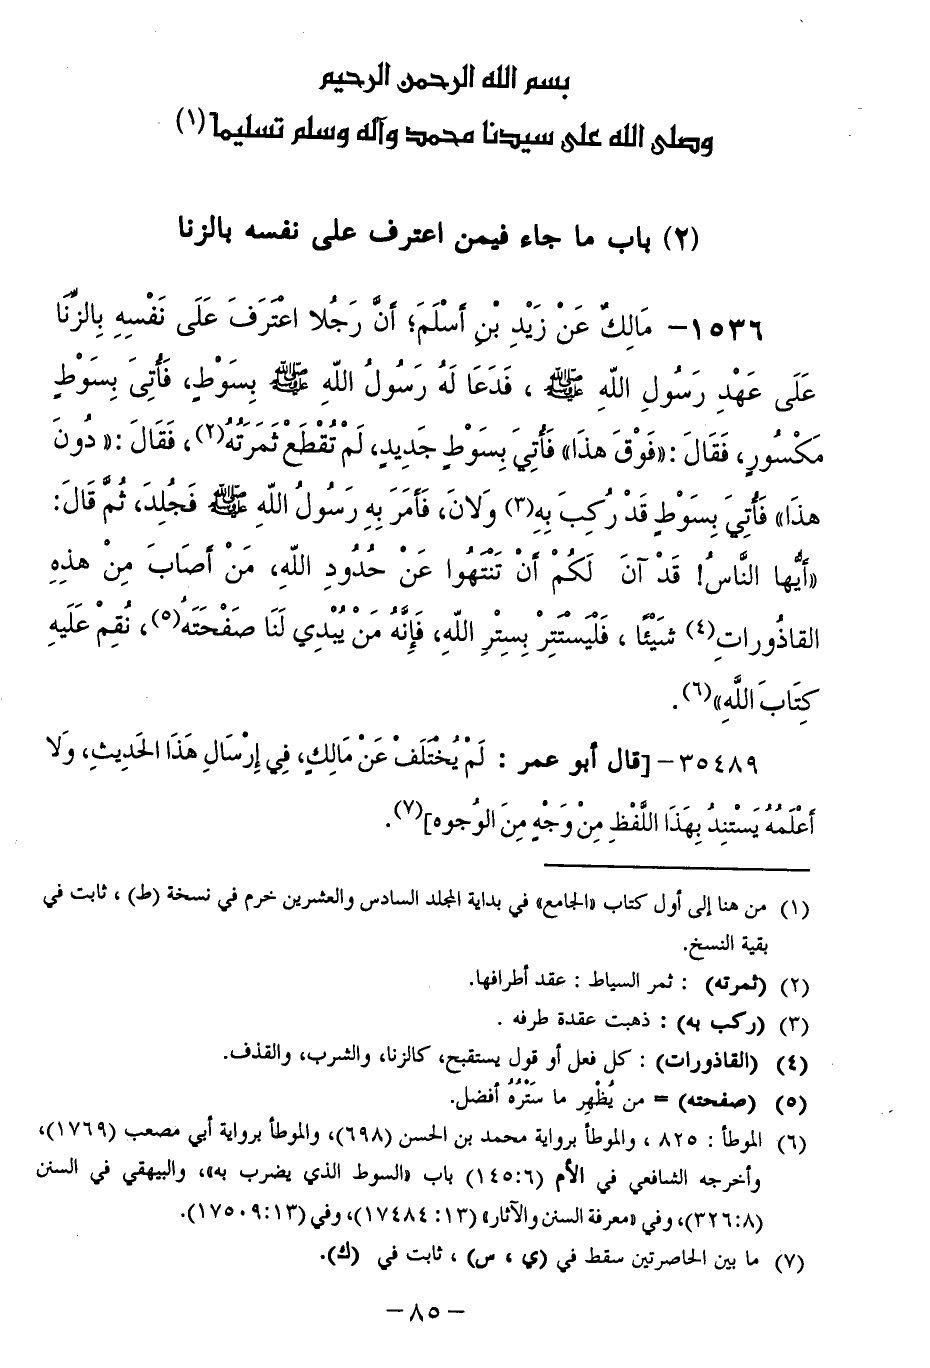 بسم الله الرحمن الرحيم
وصلى الله على سيدنا محمد وآله وسلم تسليما (١)
(٢) باب ما جاء فيمن اعترف على نفسه بالزنا
١٥٣٦- مَالِكٌ عَنْ زَيْدِ بْنِ أَسْلَمَ؛ أَنَّ رَجُلا اعْتَرَفَ عَلَى نَفْسِهِ بِالزِّنَا
عَلَى عَهْدِ رَسُولِ اللّهِ ﷺ ، فَدَعَا لَهُ رَسُولُ اللّهِ ﷺ بِسَوْطٍ، فَأُتِىَ بِسَوْطٍ
مَكْسُورٍ، فَقَالَ :«فَوْقَ هذَا» فَأُتِيَ بِسَوْطٍ جَدِيدٍ، لَمْ تُقْطَعْ ثَمَرَتُهُ(٢)، فَقَالَ :«دُونَ
هذَا» فَأُتِيَ بِسَوْطٍ قَدْ رُكِبَ بِهِ(٣) وَلانَ، فَأَمَرَ بِهِ رَسُولُ اللّهِ ﷺ فَجُلِدَ، ثُمَّ قَالَ:
«أَيُّها النَّاسُ! قَدْ آنَ لَكُمْ أَنْ تَنْتَهُوا عَنْ حُدُودِ اللّهِ، مَنْ أَصَابَ مِنْ هذِهِ
القاذُورَاتِ(٤) شَيْئًا ، فَلْيَسْتَتِرْ بِسِتْرِ اللّهِ، فَإِنَّهُ مَنْ يُبْدِي لَنَا صَفْحَتَهُ(٥)، نُقِمْ عَلَيهِ
كِتَابَ اللَّهِ»(٦).
٣٥٤٨٩- [قال أبو عمر : لَمْ يُخْتَلَفْ عَنْ مَالِكٍ، فِي إِرْسَالِ هَذَا الحَدِيثِ، وَلا
أَعْلَمُهُ يَسْتَنِدُ بِهَذَا اللَّفْظِ مِنْ وَجْهٍ مِنَ الوُجوه](٧).
(١) من هنا إلى أول كتاب «الجامع» في بداية المجلد السادس والعشرين خرم في نسخة (ط) ، ثابت في
بقية النسخ.
(٢) (ثمرته) : ثمر السياط : عقد أطرافها.
(٣) (ركب به) : ذهبت عقدة طرفه .
(٤) (القاذورات) : كل فعل أو قول يستقبح، كالزنا، والشرب، والقذف.
(٥) (صفحته) = من يُظْهِر ما سَتْرُهُ أفضل.
(٦) الموطأ : ٨٢٥ ، والموطأ برواية محمد بن الحسن (٦٩٨)، والموطأ برواية أبي مصعب (١٧٦٩)،
وأخرجه الشافعي في الأم (١٤٥:٦) باب «السوط الذي يضرب به»، والبيهقي في السنن
(٣٢٦:٨)، وفي «معرفة السنن والآثار» (١٣: ١٧٤٨٤)، وفي (١٧٥٠٩:١٣).
(٧) ما بين الحاصرتين سقط في (ي ، س) ، ثابت في (ك).
- ٨٥ -